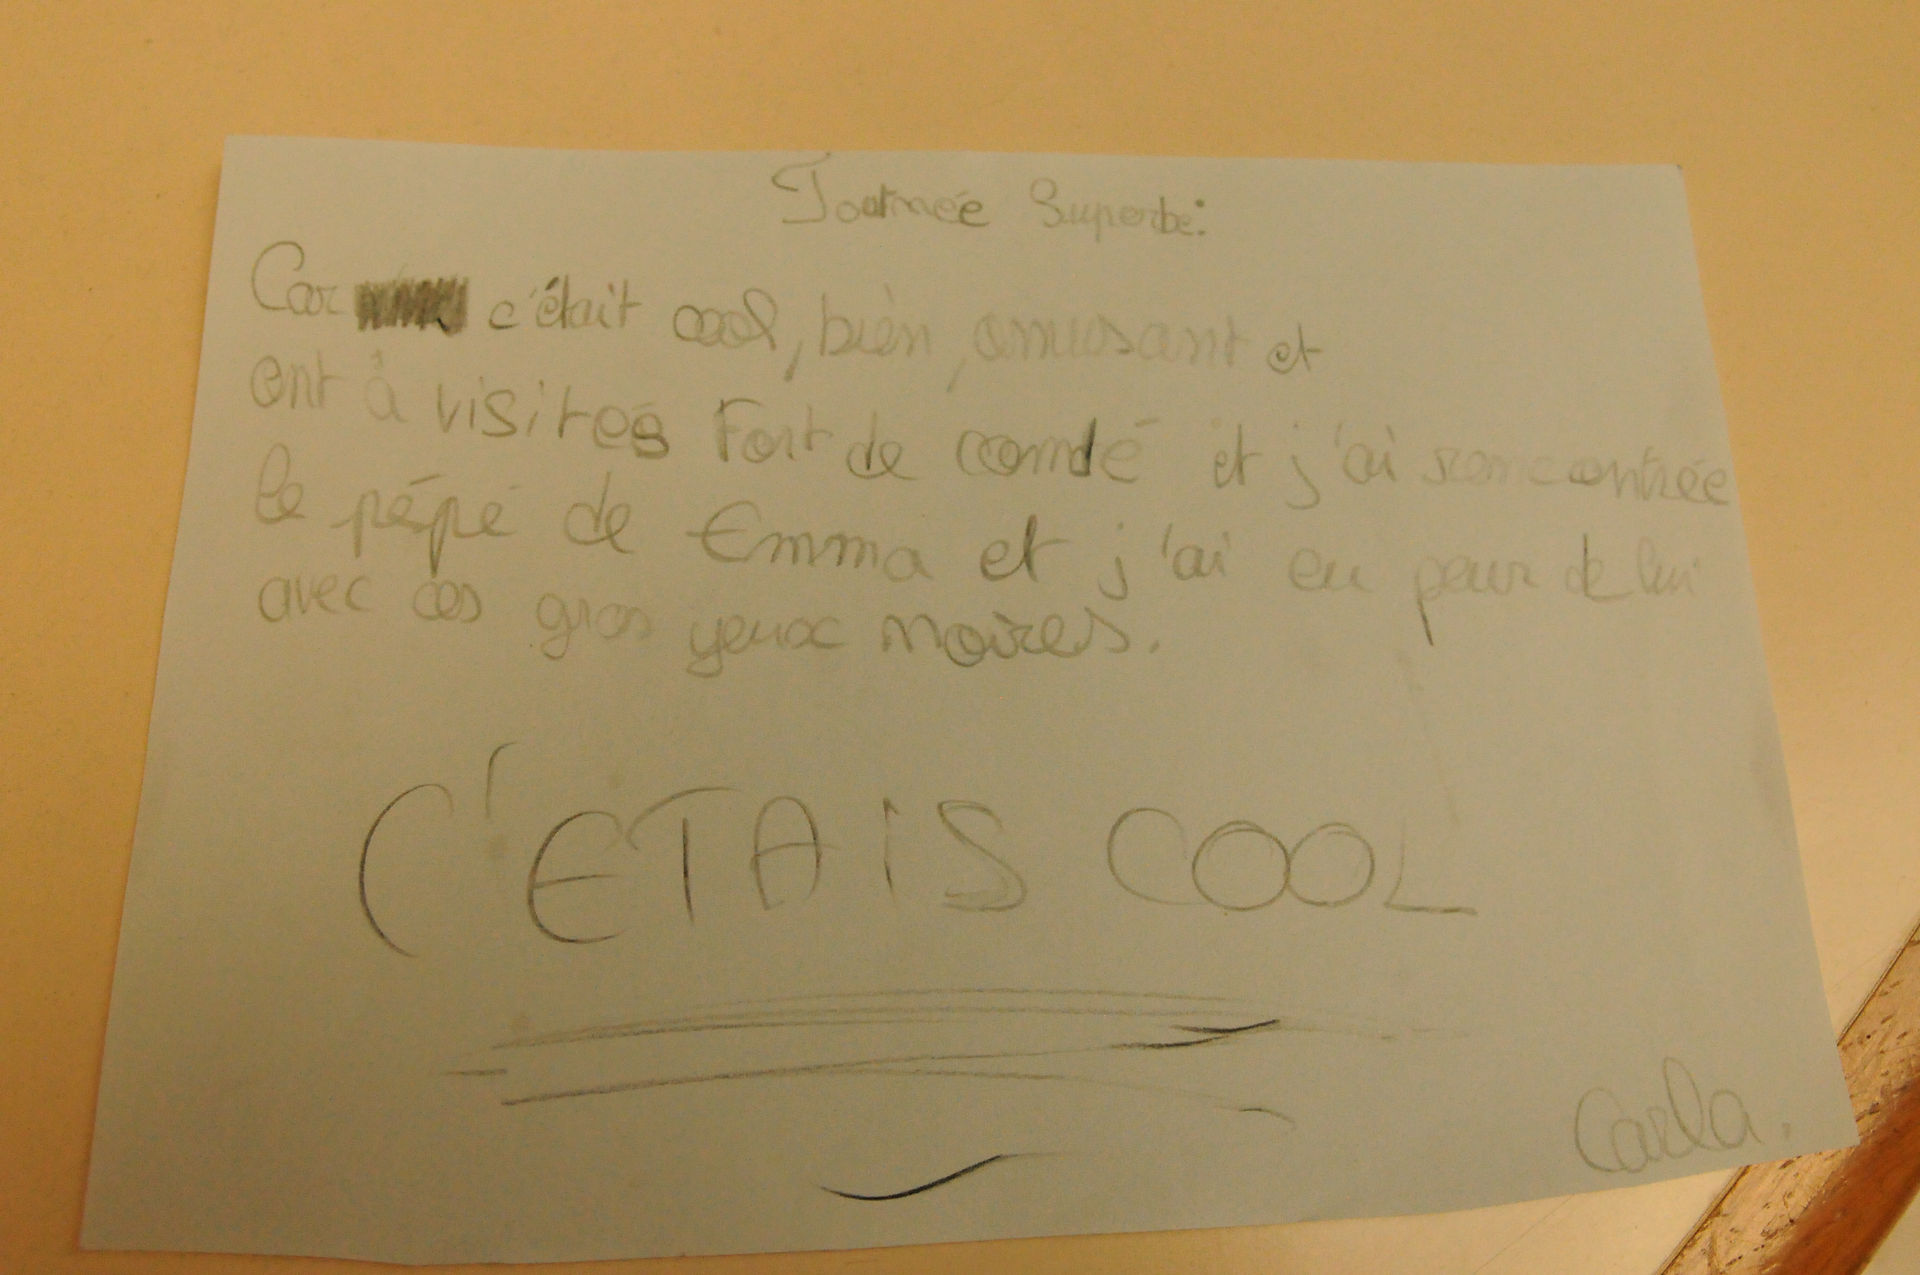 Journée Superbe:
Car c'était cool, bien, amusant et
ont à visités Fort de comdé et j'ai rencontrée
le pépé de Emma et j'ai eu peur de lui
avec ces gros yeux noires.
C'ETAIS COOL
Carla.